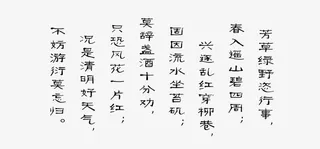 芳草绿野恣行事，
春入遥山碧四周；
兴逐乱红穿柳巷，
固因流水坐苔矶；
莫辞盏酒十分劝，
只恐风花一片红；
况是清明好天气，
不妨游衍莫忘归。